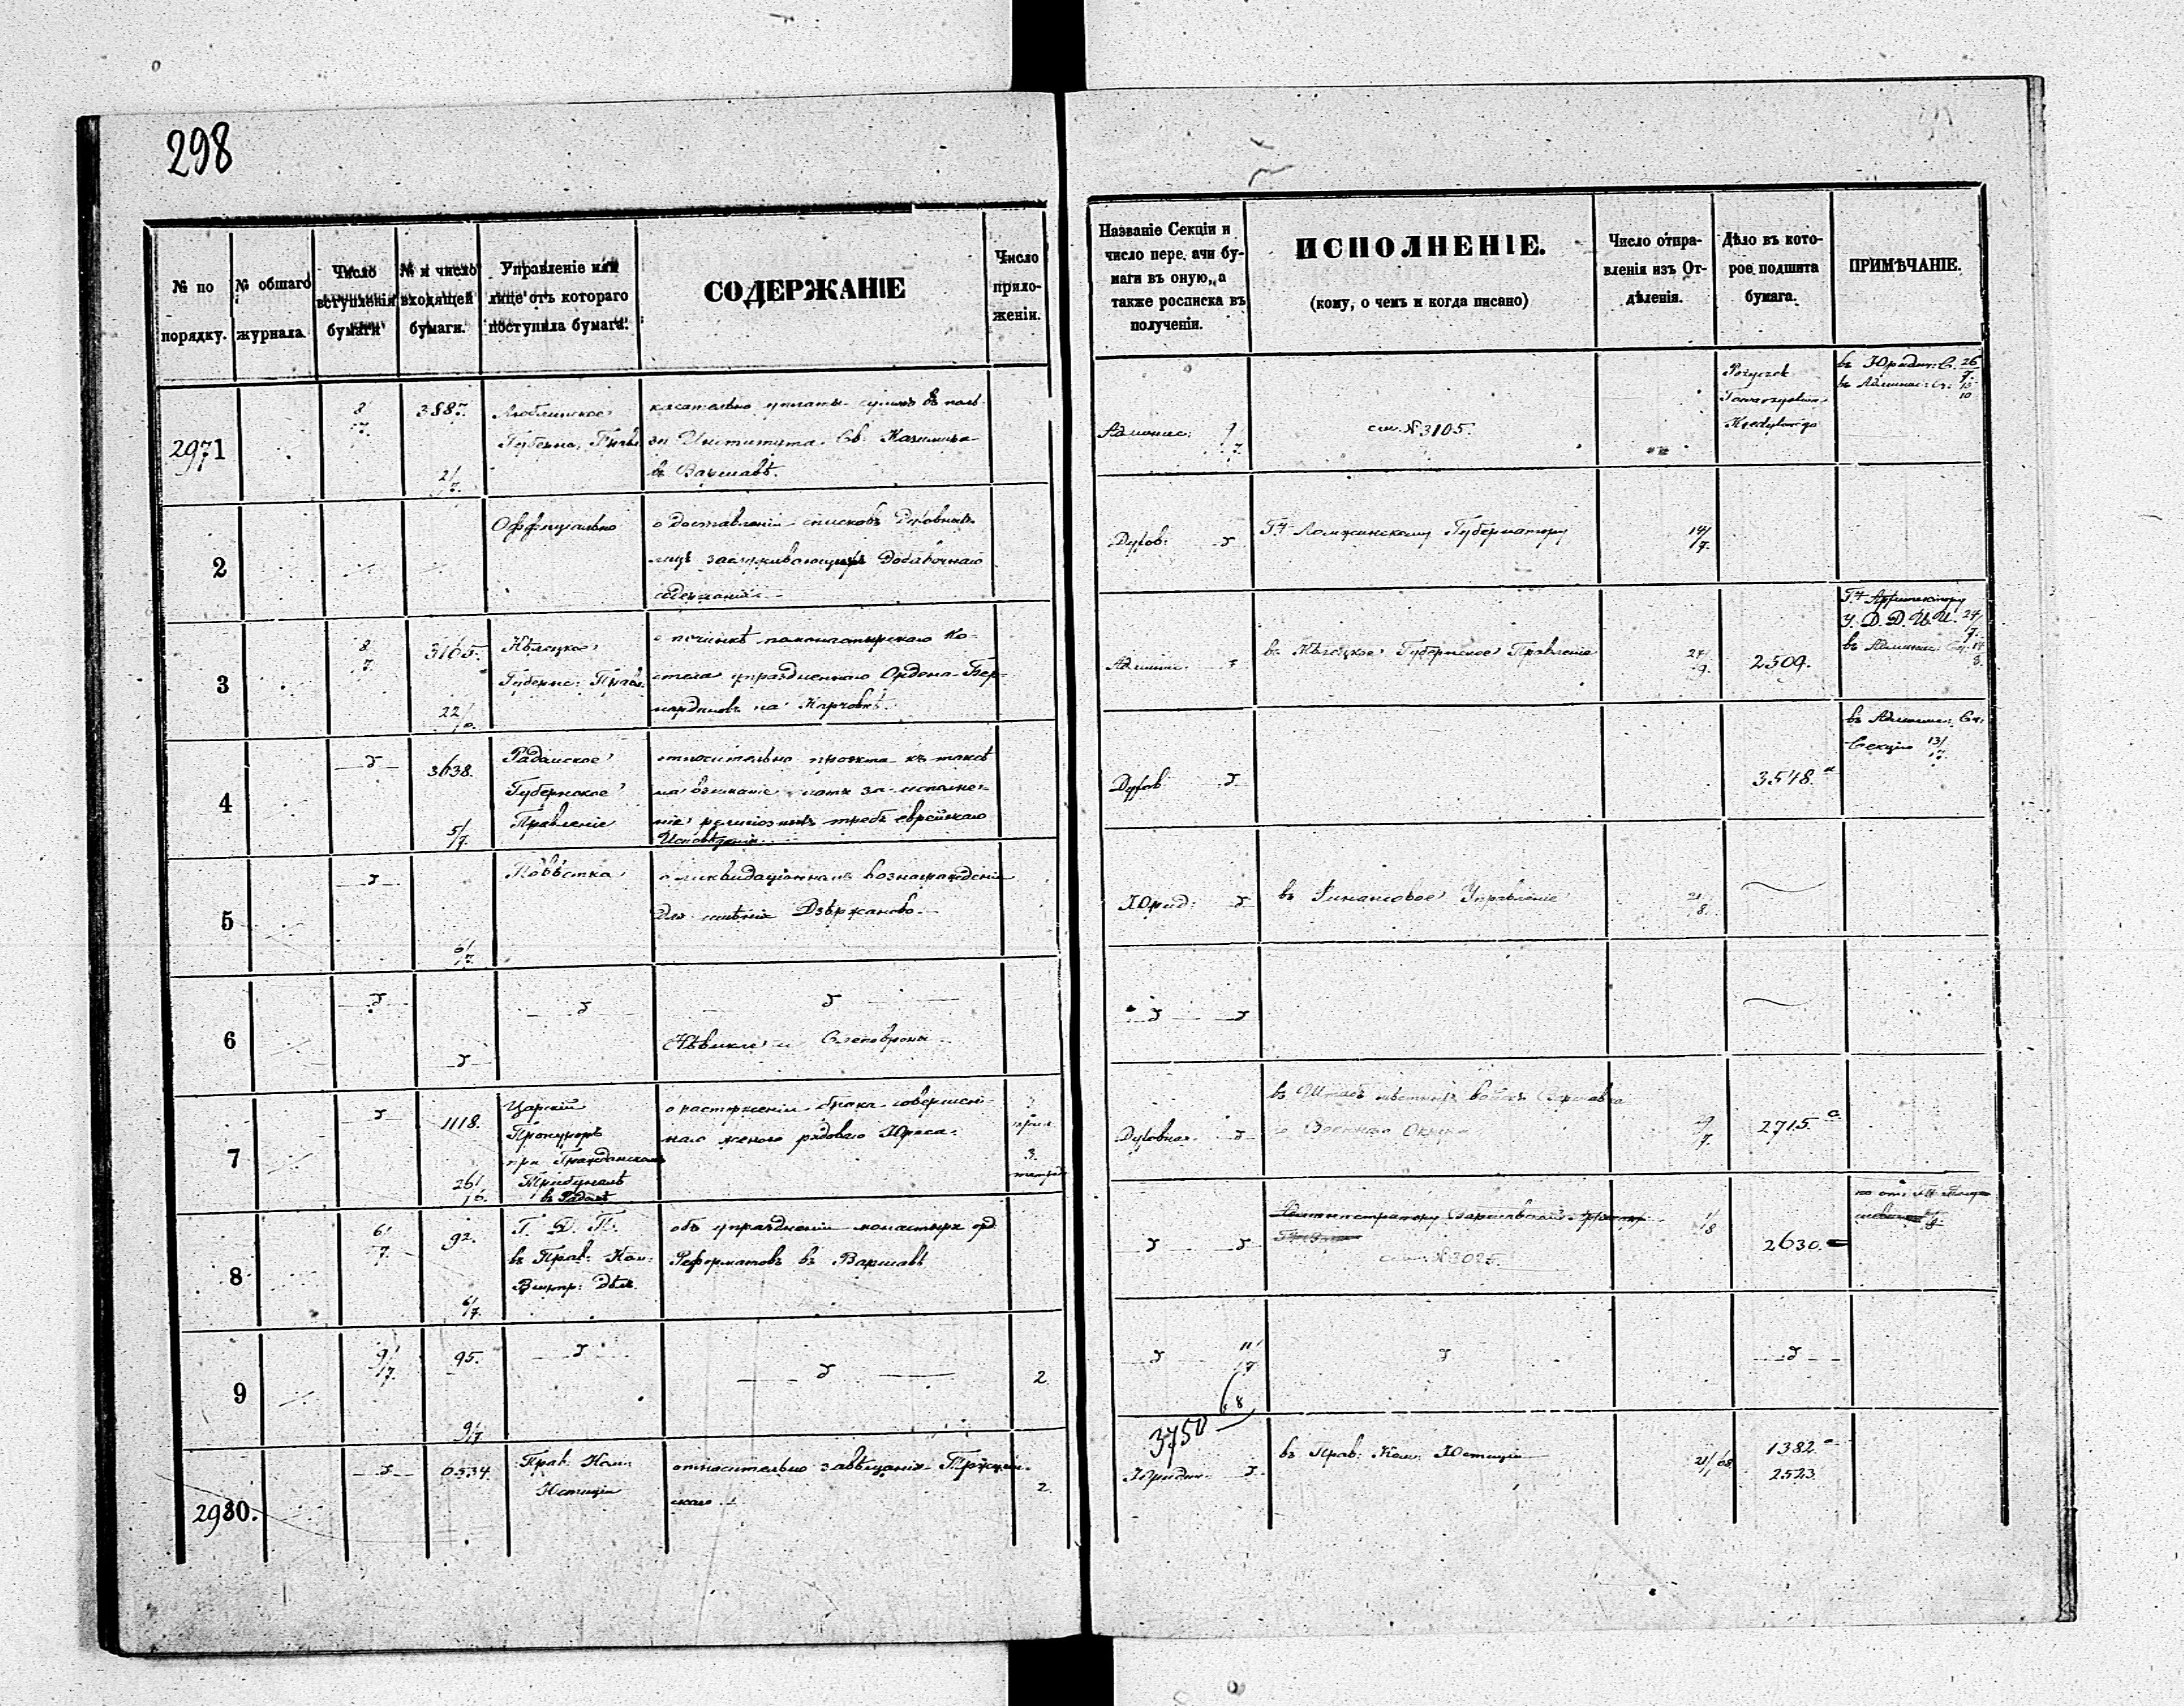 298
№ по порядку.
№ общаго журнала
Число вступленія бумаги
№ и число входящей бумаги.
Управленіе или лице отъ котораго поступила бумага.
СОДЕРЖАНІЕ
Число приложеніи.
Названіе Секціи и число передачи бумаги въ оную, а также росписка въ полученіи.
ИСПОЛНЕНІЕ.
(кому, о чемъ и когда писано)
Число отправленія изъ Отдѣленія.
Дѣло въ которое подшита бумага.
ПРИМѢЧАНІЕ.
2971
8/7.
3887.
2/7.
Люблинское
Губерн. Правл.
касательно уплаты суммъ въ поль-
зу Института Св. Казимира
въ Варшавѣ.
Админис: 9/7.
см. № 3105.
Pożyczek
Towarzystwa
Kredytowego
въ Юридич: С. 26/7.
въ Админис: С.
2
Оффиціально
о доставленіи списковъ Духовныхъ
лицъ заслуживающихъ добавочнаго
содержанія
Духов:
Гну Ломжинскому Губернатору
14/7.
3
8/7.
3165.
22/6.
Кѣлецкое
Губернс: Правл.
о починкѣ помонастырскаго Ко-
стела упраздненнаго Ордена Бер-
нардиновъ на Карчовкѣ.
Админис.
въ Кѣлецкое Губернское Правленіе
27/9.
2509.
Гну Архитектору
У. Д. Д. И. И. 24/7.
въ Админис:
4
3638.
5/7.
Радомское
Губернское
Правленіе
относительно проекта къ таксѣ
на взиманіе платы за исполне-
ніе религіозныхъ требъ еврейскаго
Исповѣданія.
Духов
3548.
въ Админис: Сч.
Секцію 13/7.
5
6/7.
Повѣстка
о ликвидаціонномъ вознагражденіи
для имѣнія Дзѣржаново.
Юрид:
въ Финансовое Управленіе
21/8.
6
7
1118.
26/6.
Царскій
Прокуроръ
при Гражданскомъ
Трибуналѣ
въ Радомѣ
о расторженіи брака совершен-
наго женою рядоваго Юреса.
3.
Духовная.
въ Штабъ мѣстныхъ войскъ Варшавска
го Военнаго Округа
29/7.
2715.
8
6/7.
92.
6/7.
Г. Д. П.
въ Прав: Ком:
Внутр: Дѣлъ.
объ упраздненіи монастыря орд.
Реформатовъ въ Варшавѣ
Администратору Варшавской
см. № 3025.
1/8
2630.
9
9/7.
95.
9/7
2.
11/7
8
2980.
6534.
Прав. Ком:
Юстиціи
относительно завѣщанія
2.
3750
Юридич.
въ Прав: Ком: Юстиціи
21/68.
1382
2523.